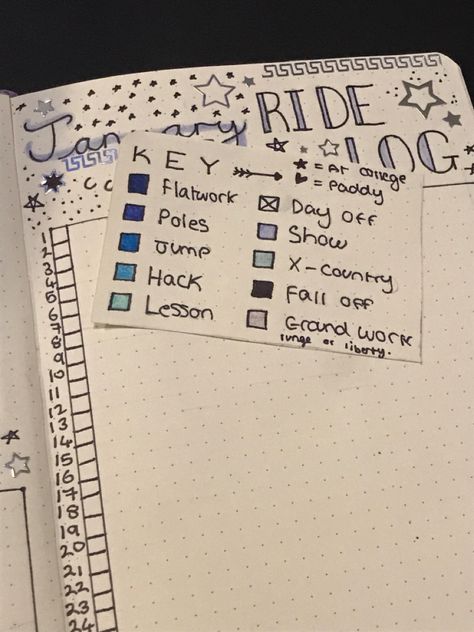 January RIDE
LOG
KEY
★ = At college
♥ = Paddy
Flatwork
Poles
Jump
Hack
Lesson
Day off
Show
X-country
Fall off
Ground work
lunge or liberty.
1
2
3
4
5
6
7
8
9
10
11
12
13
14
15
16
17
18
19
20
21
22
23
24